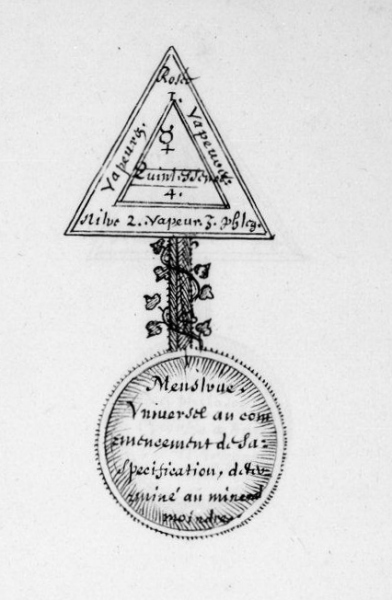 Rosée
1.
Vapeur 2.
Vapeur
Quint Essence
4.
Nitre 2. Vapeur. 3. phleg.
Menstrue.
Vniversel au com
mencement de sa
specification, deter
miné au mineral
moindre.